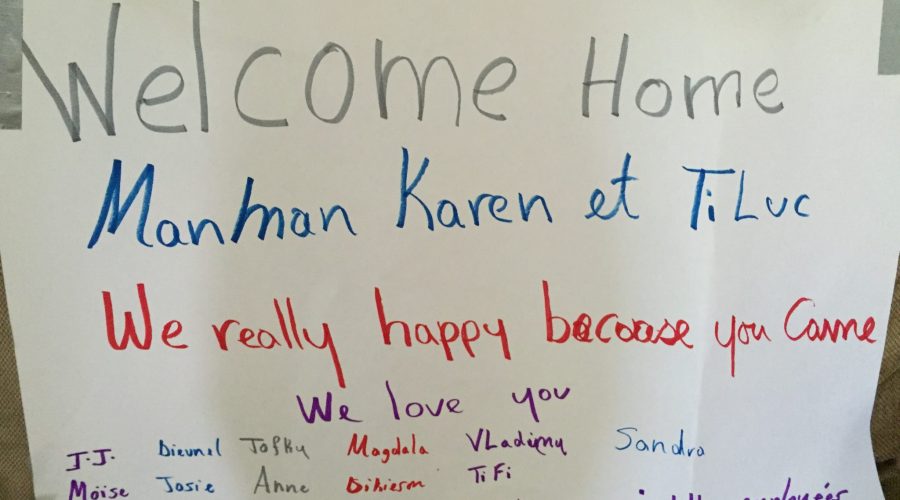 Welcome Home
Manman Karen et Ti Luc
We really happy because you Came
We love you
J.J. Dieunel Jofky Magdala VLadimy Sandra
Moïse Josie Anne TiFi